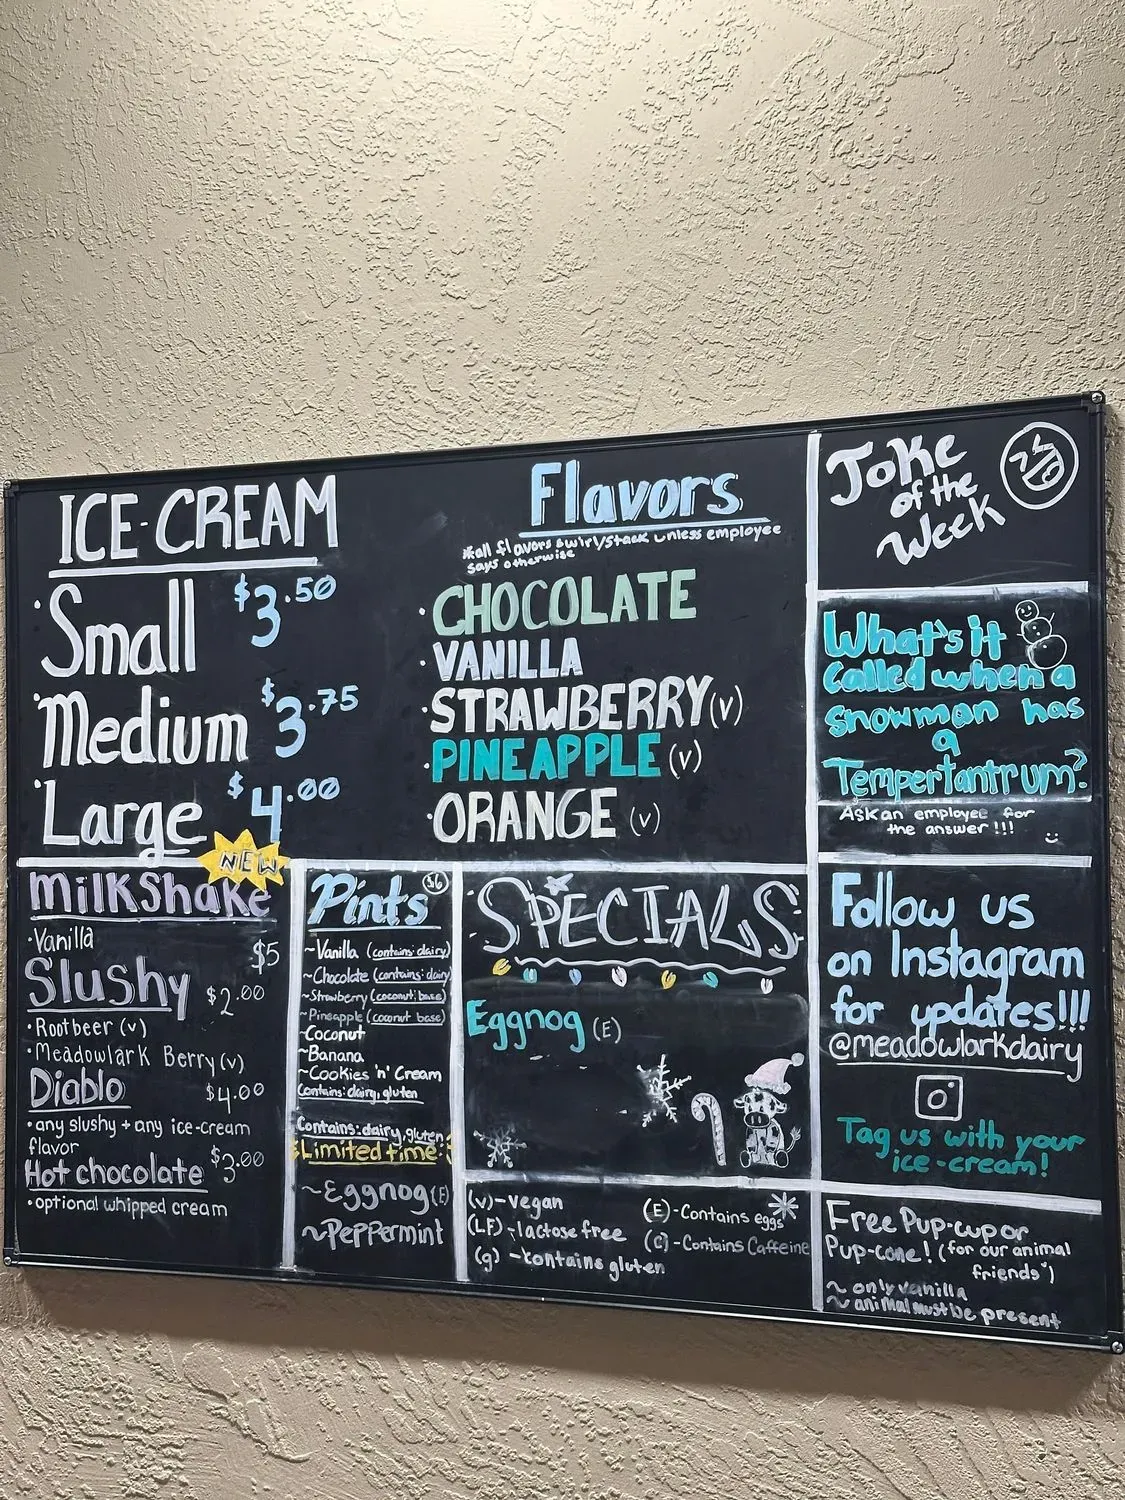 ICE-CREAM
·Small $3.50
·Medium $3.75
·Large $4.00
Flavors
*all flavors swirl/stack unless employee
says otherwise
·CHOCOLATE
·VANILLA
·STRAWBERRY (v)
·PINEAPPLE (v)
·ORANGE (v)
Joke
of the
Week
What's it
called when a
snowman has
a
Tempertantrum?
Ask an employee for
the answer!!!
NEW
Milkshake
·Vanilla $5
Slushy $2.00
·Rootbeer (v)
·Meadowlark Berry (v)
Diablo $4.00
·any slushy + any ice-cream
flavor
Hot chocolate $3.00
·optional whipped cream
Pints $6
~Vanilla (contains: dairy)
~Chocolate (contains: dairy)
~Strawberry (coconut base)
~Pineapple (coconut base)
~Coconut
~Banana
~Cookies 'n' Cream
Contains: dairy, gluten
Contains: dairy, gluten
Limited time:
~Eggnog (E)
~Peppermint
SPECIALS
Eggnog (E)
(v) - vegan
(LF) - lactose free
(g) - contains gluten
(E) - Contains eggs
(C) - Contains Caffeine
Follow us
on Instagram
for updates!!!
@meadowlarkdairy
Tag us with your
ice-cream!
Free Pup-cup or
Pup-cone! (for our animal
friends)
~ only vanilla
~ animal must be present